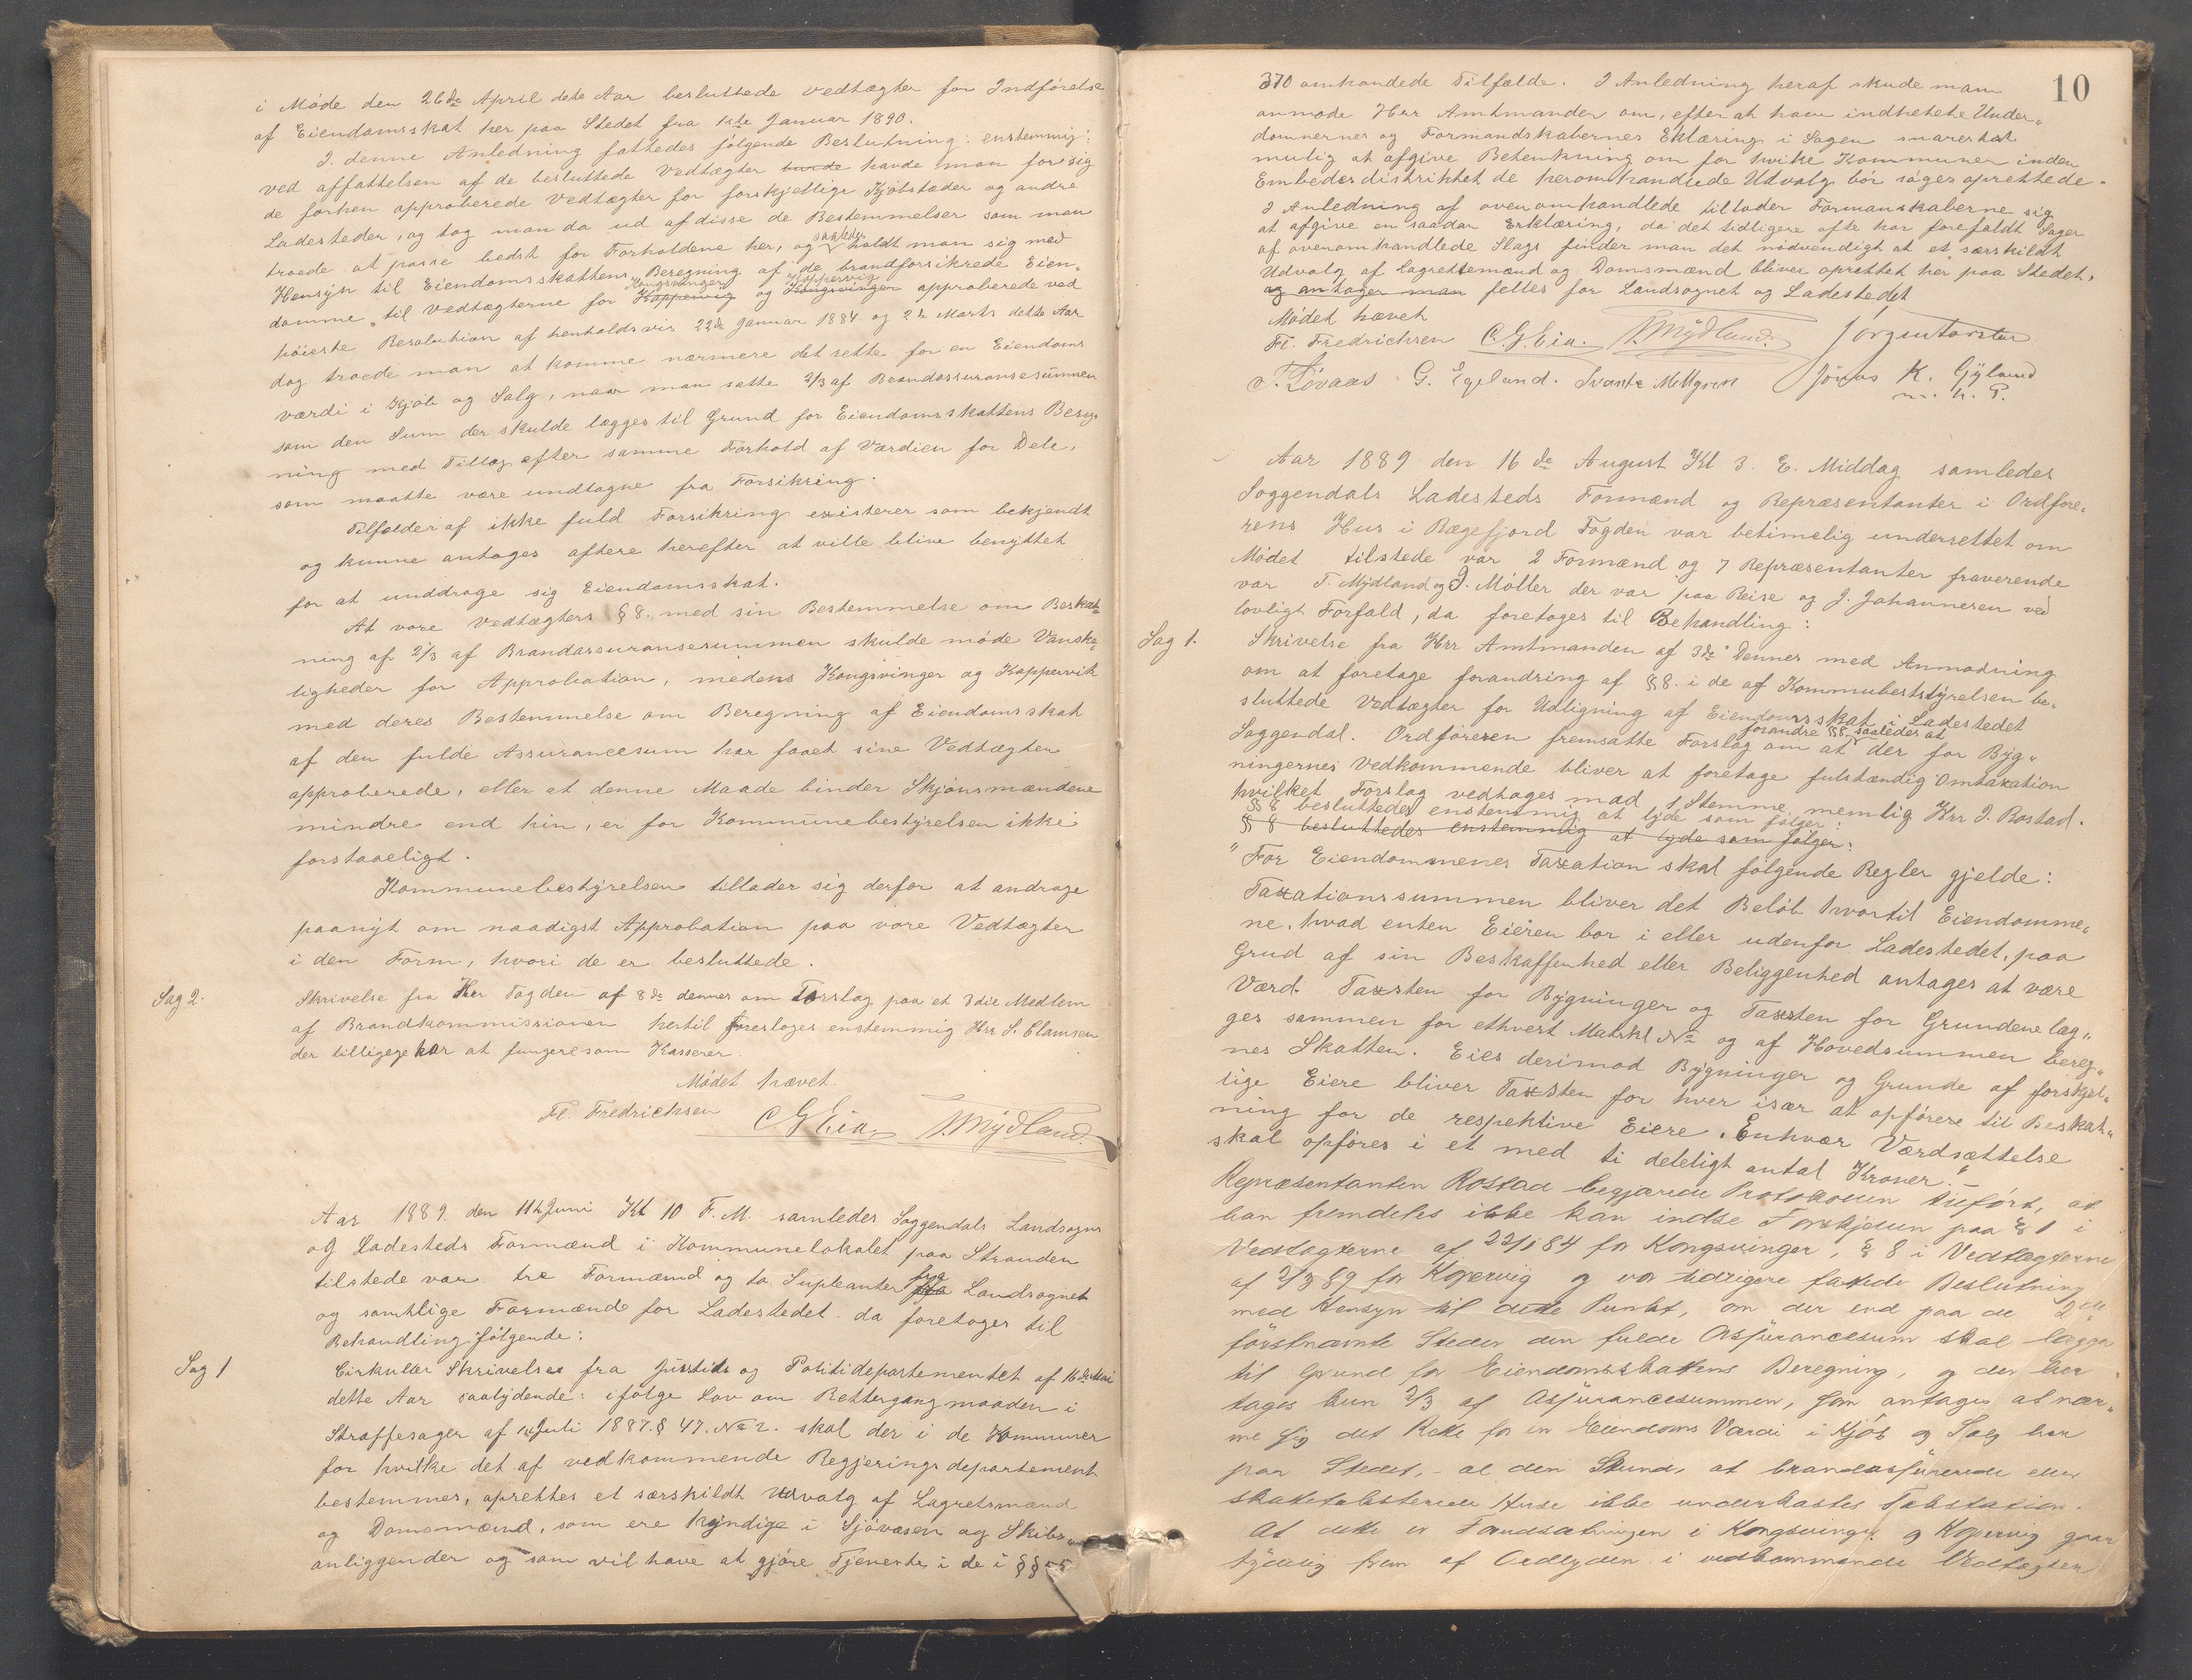 i Møde den 26de April dette Aar besluttede Vedtægter for Indførelse
af Eiendomsskat her paa Stedet fra 1ste Januar 1890.
I denne Anledning fattedes følgende Beslutning: enstemmig:
ved affattelsen af de besluttede Vedtægter burde havde man for sig
de forhen approberede Vedtægter for forskjellige Kjøbstæder og andre
Ladesteder, og tog man da ud af disse de Bestemmelser som man
troede at passe bedst for Forholdene her, og saaledes holdt man sig med
Hensyn til Eiendomsskattens Beregning af de brandforsikrede Eien„
domme til Vedtægterne for Kappervig Kongsvinger og Kongsvinger Kappervig approberede ved
høieste Resolution af henholdsvis 22de Januar 1884 og 2de Marts dette Aar
dog troede man at komme nærmere det rette for en Eiendoms
værdi i Kjøb og Salg, naar man satte 2/3 af Brandassuransesummen
som den Sum der skulde lægges til Grund for Eiendomsskattens Bereg„
ning med Tillæg efter samme Forhold af Værdien for Dele,
som maatte være undtagne fra Forsikring.
Tilfælder af ikke fuld Forsikring existerer som bekjendt
og kunne antages oftere herefter at ville blive benyttet
for at unddrage sig Eiendomsskat.
At vore Vedtægters §8. med sin Bestemmelse om Beskat„
ning af 2/3 af Brandassuransesummen skulde møde Vanske„
ligheder for Approbation, medens Kongsvinger og Kappervik
med deres Bestemmelse om Beregning af Eiendomsskat
af den fulde Assurancesum har faaet sine Vedtægter
approberede, eller at denne Maade binder Skjønsmændene
mindre end hin, er for Kommunebestyrelsen ikke
forstaaeligt.
Kommunebestyrelsen tillader sig derfor at andrage
paanyt om naadigst Approbation paa vore Vedtægter
i den Form, hvori de er besluttede.
Sag 2. Skrivelse fra Herr Fogden af 8de dennes om Forslag paa et 3die Medlem
af Brandkommissionen hertil foresloges enstemmig Hrr S. Clamsen
der tilligege har at fungere som Kasserer.
Mødet hævet.
Fl. Fredrichsen C G Eia. T. Mydland.
Aar 1889 den 11te Juni Kl 10 F.M. samledes Soggendals Landsogns
og Ladesteds Formænd i Kommunelokalet paa Stranden
tilstede var tre Formænd og to Supleanter fra Landsognet
og samtlige Formænd for Ladestedet. da foretoges til
Behandling følgende:
Sag 1 Cirkulær Skrivelse fra Justits og Politidepartementet af 16de Mai
dette Aar saalydende: ifølge Lov om Rettergangmaaden i
Straffesager af 1 Juli 1887. § 47. No 2. skal der i de Kommuner
for hvilke det af vedkommende Regjeringsdepartement
bestemmes, oprettes et særskildt Udvalg af Lagretsmænd
og Domsmænd, som ere kyndige i Sjøvæsen og Skibs„
anliggender og som vil have at gjøre Tjeneste i de i §§
10
370 omhandede Tilfælde. I Anledning heraf skude man
anmode Herr Amtmanden om, efter at have indhetete Under„
domnernes og Formandskabernes Eklæring i Sagen snarest
mulig at afgive Betenkning om for hvike Kommuner inden
Embedsdistriktet de heromhandlede Udvalg bør søges oprettede.
I Anledning af ovenomhandlede tillader Formanskaberne sig
at afgive en saadan Erklæring, da det tidligere ofte har forefaldt Sager
af ovenomhandlede Slags finder man det nødvendigt at et særskildt
Udvalg af Lagrettemænd og Domsmænd bliver oprettet her paa Stedet,
og antager man felles for Landsognet og Ladestedet
Mødet hævet
Fl. Fredrichsen C. G. Eia. T. Mydland. Jørgen Torsten
T. Løvaas G. Egeland. Svante Mellgren Jónas K. Gyland
m. h. P.
Aar 1889 den 16de August Kl 3. E. Middag samledes
Soggendals Ladesteds Formænd og Repræsentanter i Ordføre„
rens Hus i Rægefjord Fogden var betimelig underrettet om
Mødet tilstede var 2 Formænd og 7 Repræsentanter fraverende
var T. Mydland og J. Møller der var paa Reise og J. Johannesen ved
lovligt Forfald, da foretoges til Behandling:
Sag 1. Skrivelse fra Hrr Amtmanden af 3de Dennes med Anmodning
om at foretage forandring af §8. i de af Kommubestyrelsen be„
sluttede Vedtægter for Udligning af Eiendomsskat i Ladestedet
Soggendal. Ordføreren fremsatte Forslag om at forandre §8. saaledes at der for Byg„
ningernes Vedkommende bliver at foretage fulstændig Omtaxation
hvilket Forslag vedtages mod 1 Stemme nemlig Hrr J. Rostad.
§8 besluttedes enstemmig at lyde som følger:
§ 8 besluttedes enstemmig at lyde som følger:
"For Eiendommenes Taxation skal følgende Regler gjelde:
Taxationssummen bliver det Beløb hvortil Eiendomme„
ne, hvad enten Eieren bor i eller udenfor Ladestedet, paa
Grud af sin Beskaffenhed eller Beliggenhed antages at være
Værd. Taxsten for Bygninger og Taxsten for Grundene læg„
ges sammen for ethvert Matrkl No og af Hovedsummen bereg„
nes Skatten. Eies derimod Bygninger og Grunde af forskjel„
lige Eiere bliver Taxsten for hver især at opføre til Beskat„
ning for de respektive Eiere. Enhver Værdsættelse
skal opføres i et med ti deleligt antal Kroner." –
Repræsentanten Rostad begjærede Protokollen tilført, at
han fremdeles ikke kan indse Forskjellen paa § 1 i
Vedtægterne af 22/1 84 for Kongsvinger, § 8 i Vedtægterne
af 2/3 89 for Kopervig og vor tidligere fattede Beslutning
med Hensyn til dette Punkt, om der end paa de 2de
førstnævnte Steder den fulde Assurancesum skal lægges
til Grund for Eiendomsskattens Beregning, og der her
tages kun 2/3 af Assurancesummen, som antages at nær„
me sig det Rette for en Eiendoms Værdi i Kjøb og Salg her
paa Stedet, – al den Stund, at brandassurerede eller
skattetaksterede Huse ikke underkastes Takstation.
At dette er Forudsætningen i Kongsvinger og Kopervig gaar
tydelig frem af Ordlyden i vedkommende Vedtægter